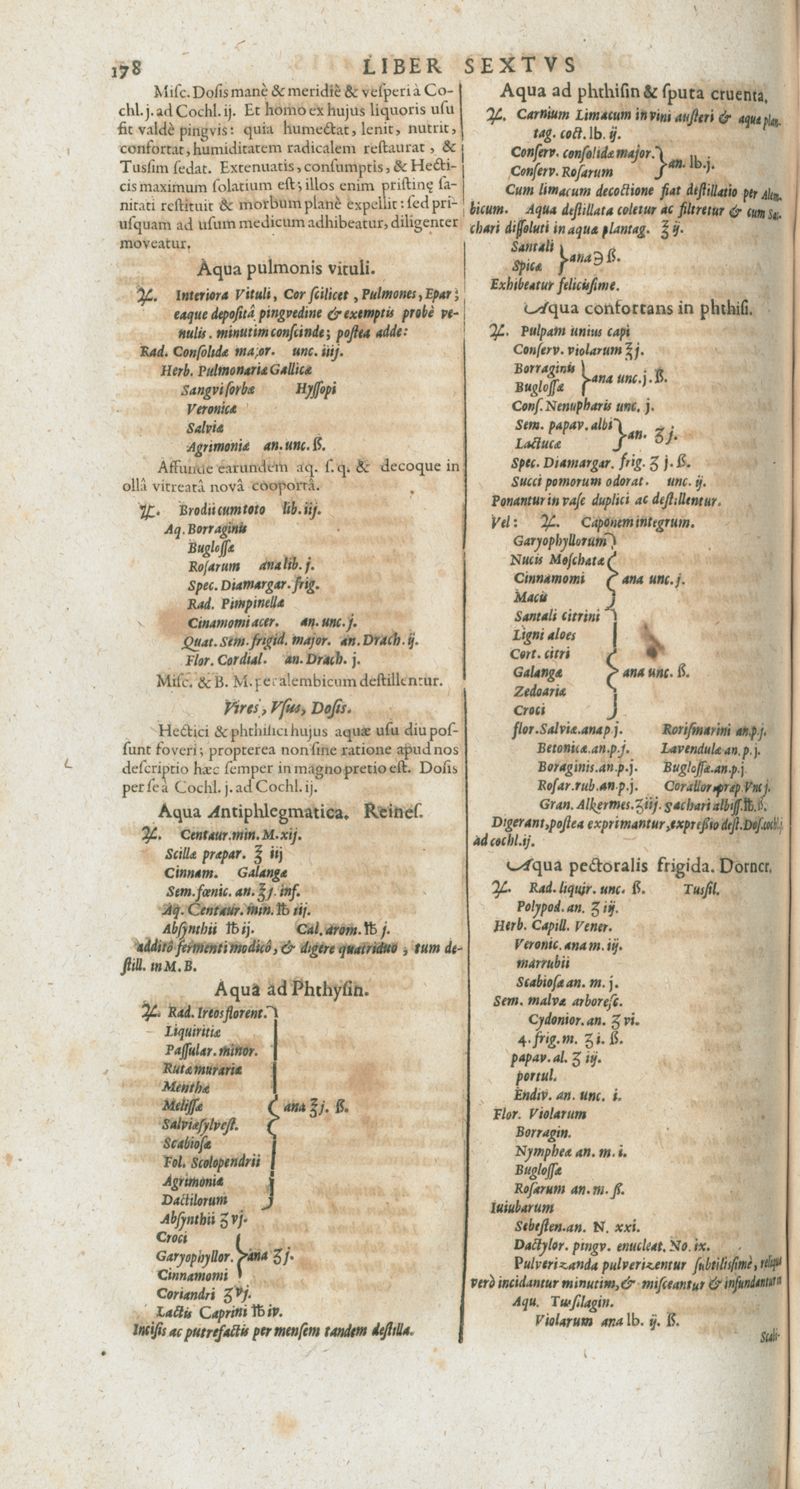 178 LIBER SEXTVS
Miſc. Doſis manè & meridiè & veſperi à Co-
chl. j. ad Cochl. ij. Et homo ex hujus liquoris uſu
fit valdè pingvis: quia humectat, lenit, nutrit,
confortat, humiditatem radicalem reſtaurat, &
Tusſim ſedat. Extenuatis, conſumptis, & Hecti-
cis maximum ſolatium eſt; illos enim priſtinę ſa-
nitati reſtituit & morbum planè expellit: ſed pri-
uſquam ad uſum medicum adhibeatur, diligenter
moveatur.
Aqua pulmonis vituli.
℞. Interiora Vituli, Cor ſcilicet, Pulmones, Epar;
eaque depoſitâ pingvedine & exemptis probè ve-
nulis. minutim conſcinde; poſtea adde:
Rad. Conſolidæ major. unc. iiij.
Herb. Pulmonariæ Gallicæ
Sangviſorbæ Hyſſopi
Veronicæ
Salviæ
Agrimoniæ an. unc. ß.
Affunde earundem aq. ſ. q. & decoque in
ollâ vitreatâ novâ coopertâ.
℞. Brodii cum toto lib. iij.
Aq. Borraginis
Bugloſſæ
Roſarum ana lib. j.
Spec. Diamargar. frig.
Rad. Pimpinellæ
Cinamomi acer. an. unc. j.
Quat. Sem. frigid. major. an. Drach. ij.
Flor. Cordial. an. Drach. j.
Miſc. & B. M. per alembicum deſtillentur.
Vires, Vſus, Doſis.
Hectici & phthiſici hujus aquæ uſu diu poſ-
ſunt foveri; propterea non ſine ratione apud nos
deſcriptio hæc ſemper in magno pretio eſt. Doſis
per ſe à Cochl. j. ad Cochl. ij.
Aqua Antiphlegmatica. Reineſ.
℞. Centaur. min. M. xij.
Scillæ præpar. ℥ iij
Cinnam. Galangæ
Sem. fœnic. an. ℥j. inf.
Aq. Centaur. min. ℔ iij.
Abſynthii ℔ ij. Cal. arom. ℔ j.
additô fermenti modicô, & digere quatriduo, tum de-
ſtill. in M. B.
Aqua ad Phthyſin.
℞. Rad. Ireos florent.
Liquiritiæ
Paſſular. minor.
Ruta muraria
Menthæ
Meliſſæ ana ℥j. ß.
Salviæ ſylveſt.
Scabioſæ
Fol. Scolopendrii
Agrimoniæ
Dactilorum
Abſynthii ʒ vj.
Croci
Garyophyllor. ana ʒ j.
Cinnamomi
Coriandri ʒ vj.
Lactis Caprini ℔ iv.
Inciſis ac putrefactis per menſem tandem deſtilla.
Aqua ad phthiſin & ſputa cruenta.
℞. Carnium Limacum in vini auſteri & aqua plan-
tag. coct. lb. ij.
Conſerv. conſolidæ major.
Conſerv. Roſarum an. lb. j.
Cum limacum decoctione fiat deſtillatio per Alem-
bicum. Aqua deſtillata coletur ac filtretur & cum Sac-
chari diſſoluti in aqua plantag. ℥ ij.
Santali
Spicæ ana ℈ ß.
Exhibeatur feliciſſime.
Aqua confortans in phthiſi.
℞. Pulpam unius capi
Conſerv. violarum ℥ j.
Borraginis
Bugloſſæ ana unc. j. ß.
Conſ. Nenupharis unc. j.
Sem. papav. albi
Lactucæ an. ʒ j.
Spec. Diamargar. frig. ʒ j. ß.
Succi pomorum odorat. unc. ij.
Ponantur in vaſe duplici ac deſtillentur.
Vel: ℞. Caponem integrum.
Garyophyllorum
Nucis Moſchatæ
Cinnamomi ana unc. j.
Macis
Santali citrini
Ligni aloes
Cort. citri
Galangæ ana unc. ß.
Zedoariæ
Croci
flor. Salviæ. ana p. j. Roriſmarini an. p. j.
Betonicæ. an. p. j. Lavendulæ an. p. j.
Boraginis. an. p. j. Bugloſſæ. an. p. j.
Roſar. rub. an. p. j. Corallor. præp. Vnc j.
Gran. Alkermes. ʒ iij. ſachari albiſſ. ℔. ß.
Digerant, poſtea exprimantur, expreſſio deſt. Doſ. cochl. j.
ad cochl. ij.
Aqua pectoralis frigida. Dorncr.
℞. Rad. liquir. unc. ß. Tuſſil.
Polypod. an. ʒ iij.
Herb. Capill. Vener.
Veronic. ana m. iij.
marrubii
Scabioſæ an. m. j.
Sem. malvæ arboreſc.
Cydonior. an. ʒ vi.
4. frig. m. ʒ i. ß.
papav. al. ʒ iij.
portul.
Endiv. an. unc. i.
Flor. Violarum
Borragin.
Nympheæ an. m. i.
Bugloſſæ
Roſarum an. m. ß.
Iuiubarum
Sebeſten. an. N. xxi.
Dactylor. pingv. enucleat. No. ix.
Pulverizanda pulverizentur ſubtiliſſimè, reliqua
verò incidantur minutim, & miſceantur & infundantur in
Aqu. Tuſſilagin.
Violarum ana lb. ij. ß.
Scabi-